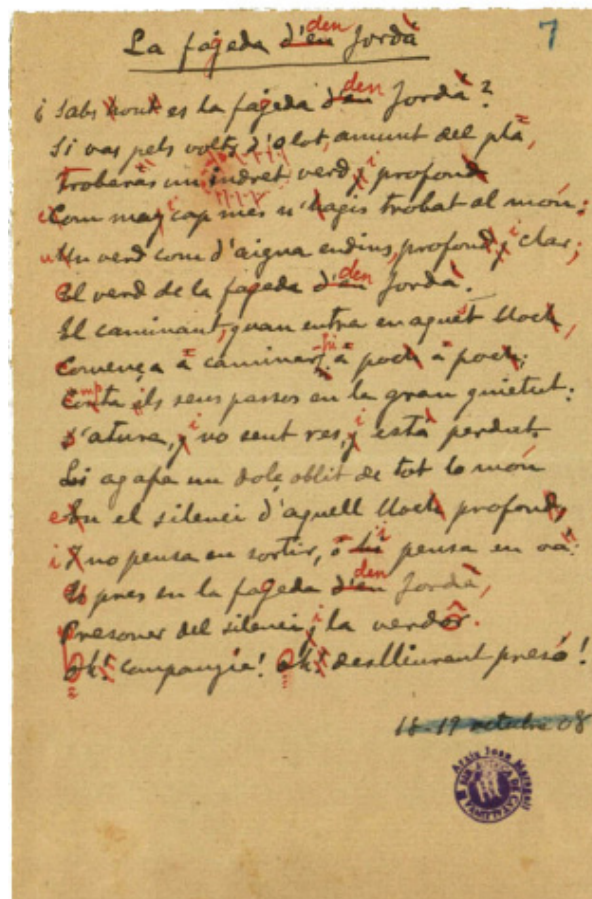 7
La fageda d'en den Jordà
¿Sabs hont es la fageda d'en den Jordà?
Si vas pels volts d'Olot, amunt del plà,
trobaràs un indret verd y i profond
Com may i cap mes n'hagis trobat al món:
Un verd com d'aigua endins, profond y i clar;
El verd de la fageda d'en den Jordà.
El caminant, quan entra en aquet lloch,
Comença à caminar à poch à poch;
Conta els seus passos en la gran quietut:
S'atura, y i no sent res, y i està perdut.
Li agafa un dolç oblit de tot lo món
En el silenci d'aquell lloch profond,
Y no pensa en sortir, ò hi pensa en và:
Es pres en la fageda d'en den Jordà,
Presoner del silenci y i la verdor.
Oh! companyia! Oh! deslliurant presó!
18-19 octubre 08
Arxiu Joan Maragall
BIBLIOTECA DE CATALUNYA